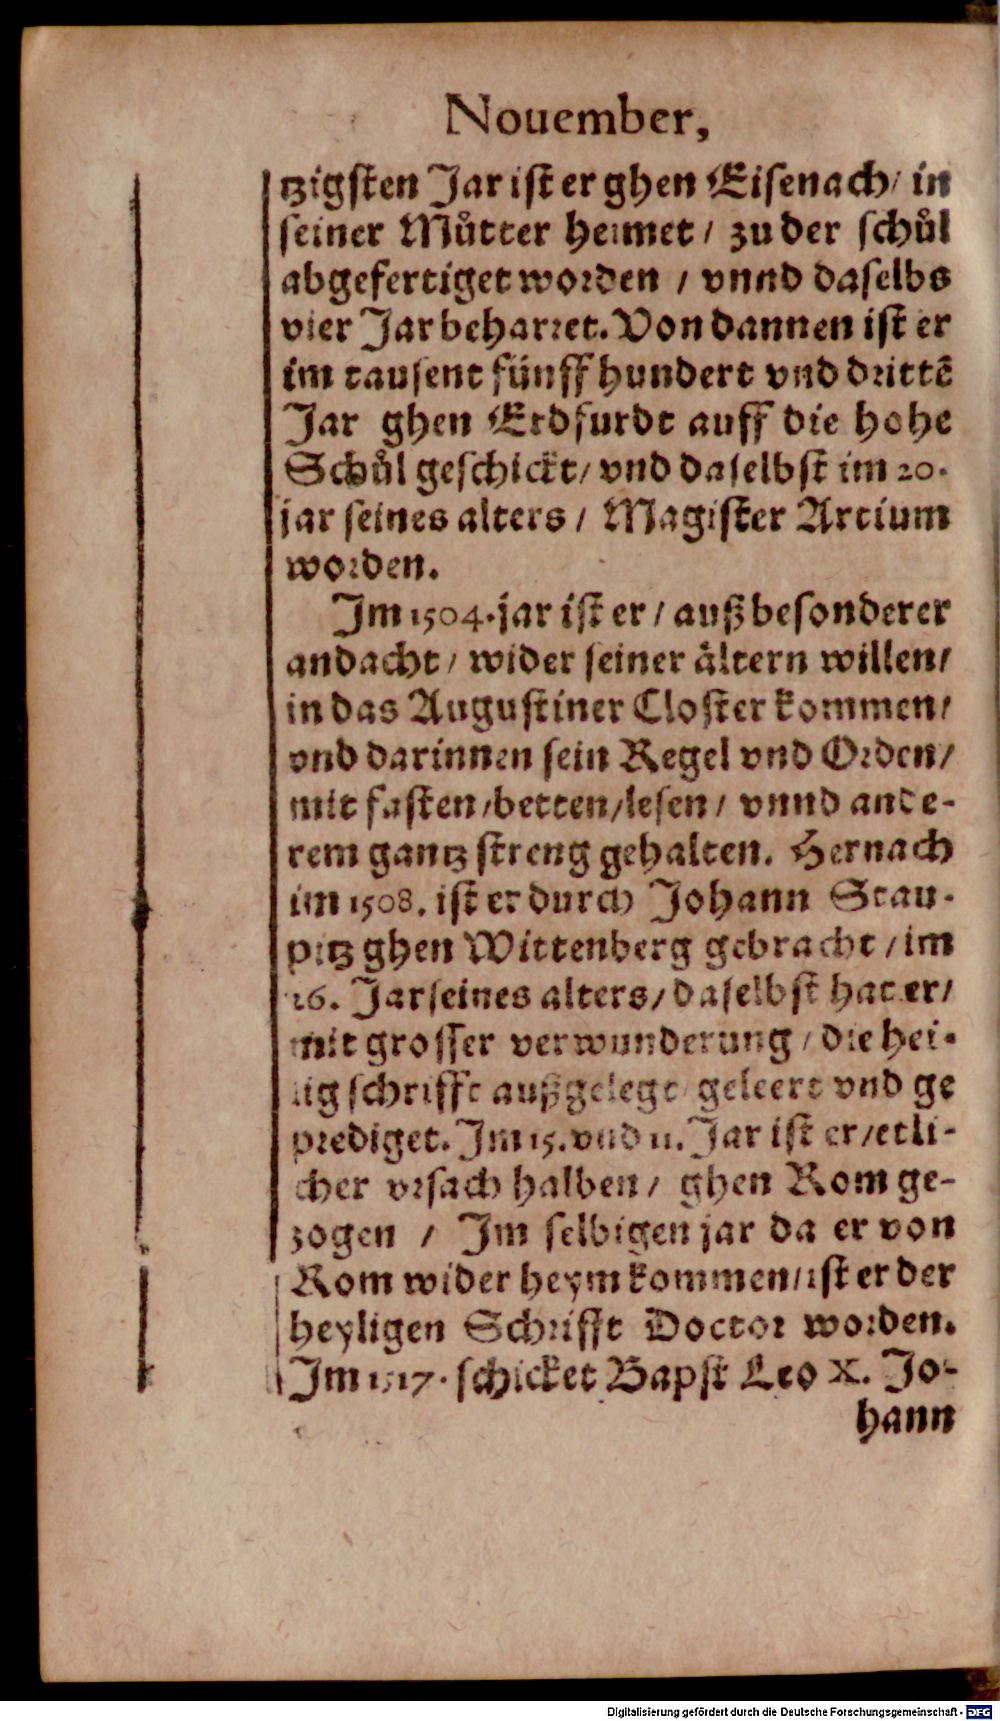 Nouember,
tzigsten Jar ist er ghen Eisenach/ in
seiner Můtter heimet / zu der schůl
abgefertiget worden / vnnd daselbs
vier Jar beharret. Von dannen ist er
im tausent fünff hundert vnd drittē
Jar ghen Erdfurdt auff die hohe
Schůl geschickt/ vnd daselbst im 20.
jar seines alters / Magister Artium
worden.
Im 1504. jar ist er / auß besonderer
andacht / wider seiner ältern willen/
in das Augustiner Closter kommen/
vnd darinnen sein Regel vnd Orden/
mit fasten/betten/lesen/ vnnd ande-
rem gantz streng gehalten. Hernach
im 1508. ist er durch Johann Stau-
pitz ghen Wittenberg gebracht / im
26. Jar seines alters/ daselbst hat er/
mit grosser verwunderung / die hei-
lig schrifft außgelegt/ geleert vnd ge
prediget. Im 15. vnd 11. Jar ist er/etli-
cher vrsach halben/ ghen Rom ge-
zogen / Im selbigen jar da er von
Rom wider heym kommen/ist er der
heyligen Schrifft Doctor worden.
Im 1517. schicket Bapst Leo X. Jo-
hann
Digitalisierung gefördert durch die Deutsche Forschungsgemeinschaft - DFG